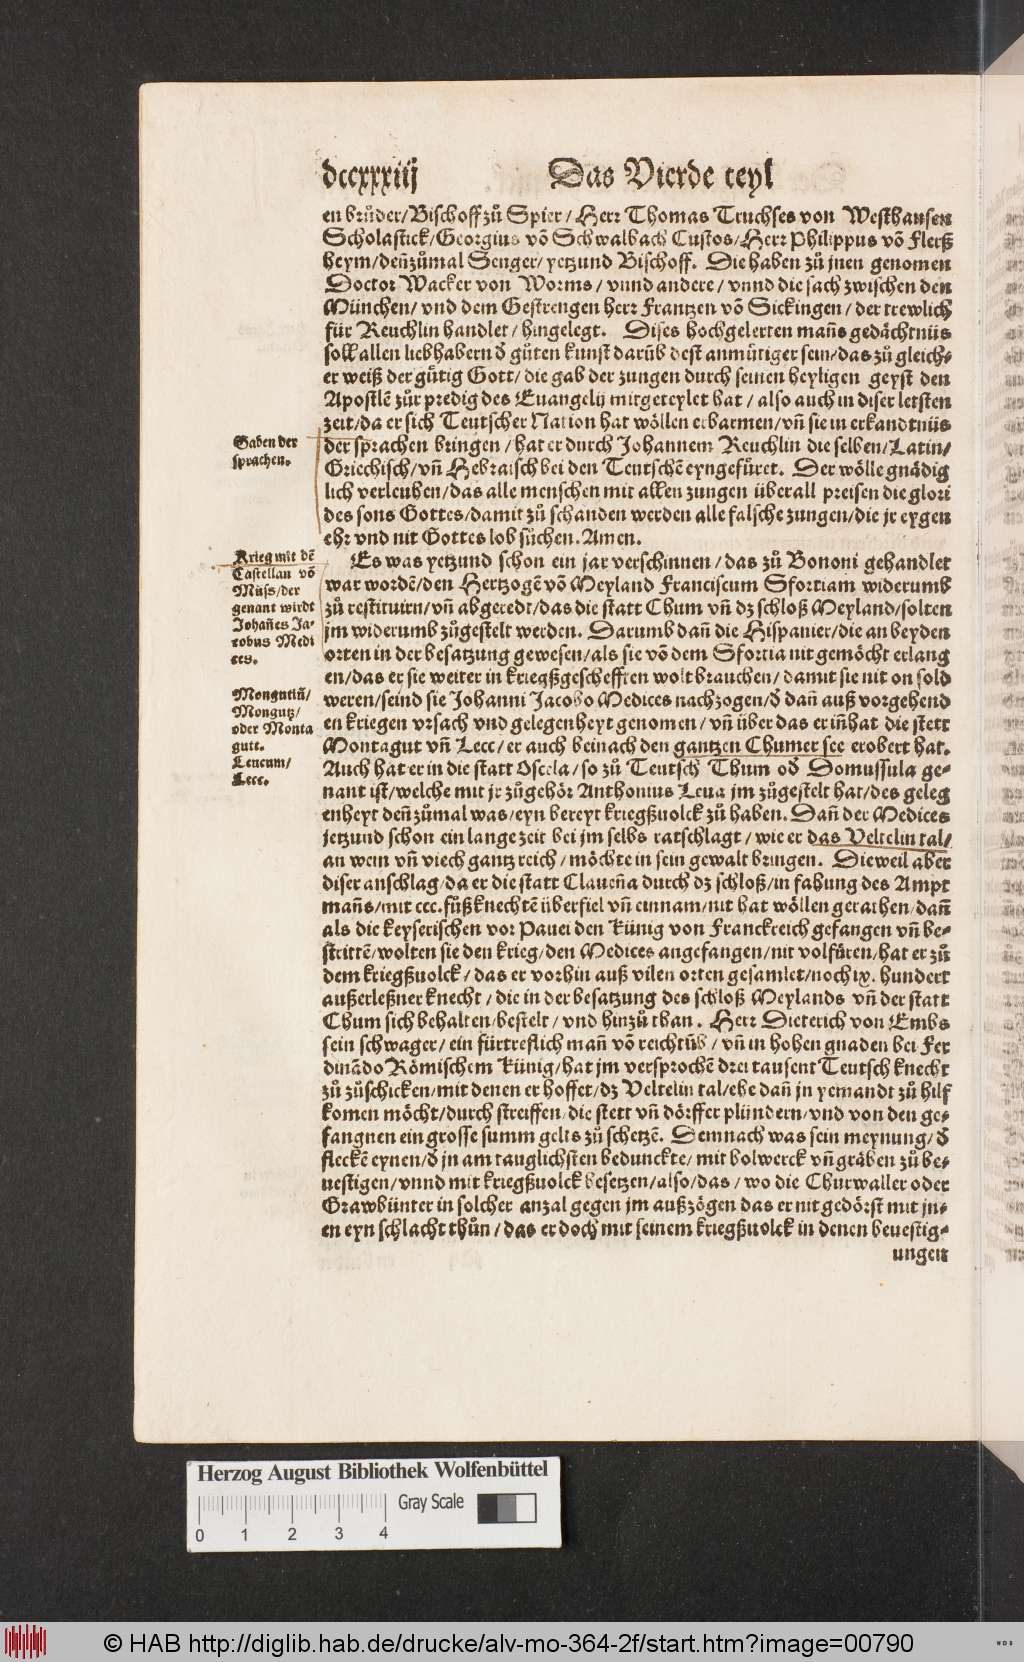 dccxxxiiij Das Vierde teyl
en brůder/Bischoff zů Spier/Herr Thomas Truchses von Westhausen
Scholastick/Georgius võ Schwalbach Custos/Herr Philippus võ Flerß
heym/deñzůmal Senger/yetzund Bischoff. Die haben zů jnen genomen
Doctor Wacker von Worms/vnnd andere/vnnd die sach zwischen den
München/vnd dem Gestrengen herr Frantzen võ Sickingen/der trewlich
für Reuchlin handlet/hingelegt. Dises hochgelerten mañs gedächtnüs
soll allen liebhabern d̄ gůten kunst darũb dest anmütiger sein/das zů gleich-
er weiß der gütig Gott/die gab der zungen durch seinen heyligen geyst den
Apostlē zůr predig des Euangelij mitgeteylet hat/also auch in diser letsten
zeit/da er sich Teutscher Nation hat wöllen erbarmen/vñ sie in erkandtnüs
der sprachen bringen/hat er durch Johannem Reuchlin die selben/Latin/
Griechisch/vñ Hebraisch bei den Teutschē eyngefüret. Der wölle gnädig
lich verleuhen/das alle menschen mit allen zungen überall preisen die glori
des sons Gottes/damit zů schanden werden alle falsche zungen/die jr eygen
ehr vnd nit Gottes lob sůchen. Amen.
Gaben der
sprachen.
Es was yetzund schon ein jar verschinnen/das zů Bononi gehandlet
war wordē/den Hertzogē võ Meyland Franciscum Sfortiam widerumb
zů restituirn/vñ abgeredt/das die statt Chum vñ dz schloß Meyland/solten
jm widerumb zůgestelt werden. Darumb dañ die Hispanier/die an beyden
orten in der besatzung gewesen/als sie võ dem Sfortia nit gemöcht erlang
en/das er sie weiter in kriegßgeschefften wolt brauchen/damit sie nit on sold
weren/seind sie Johanni Jacobo Medices nachzogen/d̄ dañ auß vorgehend
en kriegen vrsach vnd gelegenheyt genomen/vñ über das er iñhat die stett
Montagut vñ Lecc/er auch beinach den gantzen Chumer see erobert hat.
Auch hat er in die statt Oscela/so zů Teutsch Thum od̄ Domussula ge-
nant ist/welche mit jr zůgehör Anthonius Leua jm zůgestelt hat/des geleg
enheyt deñzůmal was/eyn bereyt kriegßuolck zů haben. Dañ der Medices
jetzund schon ein lange zeit bei jm selbs ratschlagt/wie er das Veltelin tal/
an wein vñ viech gantz reich/möchte in sein gewalt bringen. Dieweil aber
diser anschlag/da er die statt Claueña durch dz schloß/in fahung des Ampt
mañs/mit ccc. fůßknechtē überfiel vñ einnam/nit hat wöllen gerathen/dañ
als die keyserischen vor Pauei den Künig von Franckreich gefangen vñ be-
strittē/wolten sie den krieg/den Medices angefangen/nit volfüren/hat er zů
dem kriegßuolck/das er vorhin auß vilen orten gesamlet/noch ix. hundert
außerleßner knecht/die in der besatzung des schloß Meylands vñ der statt
Chum sich behalten/bestelt/vnd hinzů than. Herr Dieterich von Embs
sein schwager/ein fürtreflich mañ võ reichtũb/vñ in hohen gnaden bei Fer
dinãdo Römischem Künig/hat jm versprochē drei tausent Teutsch knecht
zů zůschicken/mit denen er hoffet/dz Veltelin tal/ehe dañ jn yemandt zů hilf
komen möcht/durch streiffen/die stett vñ dörffer plündern/vnd von den ge-
fangnen ein grosse summ gelts zů schetzē. Demnach was sein meynung/d̄
fleckē eynen/d̄ jn am tauglichsten bedunckte/mit bolwerck vñ gräben zů be-
uestigen/vnnd mit kriegßuolck besetzen/also/das/wo die Churwaller oder
Grawbünter in solcher anzal gegen jm außzögen das er nit gedörst mit jn-
en eyn schlacht thůn/das er doch mit seinem kriegßuolck in denen beuestig-
ungen
Krieg mit dē
Castellan võ
Müss/der
genant wirdt
Johañes Ja-
cobus Medi
ces.
Mongutiũ/
Mongutz/
oder Monta
gutt.
Leucum/
Lecc.
Herzog August Bibliothek Wolfenbüttel
Gray Scale
0 1 2 3 4
© HAB http://diglib.hab.de/drucke/alv-mo-364-2f/start.htm?image=00790